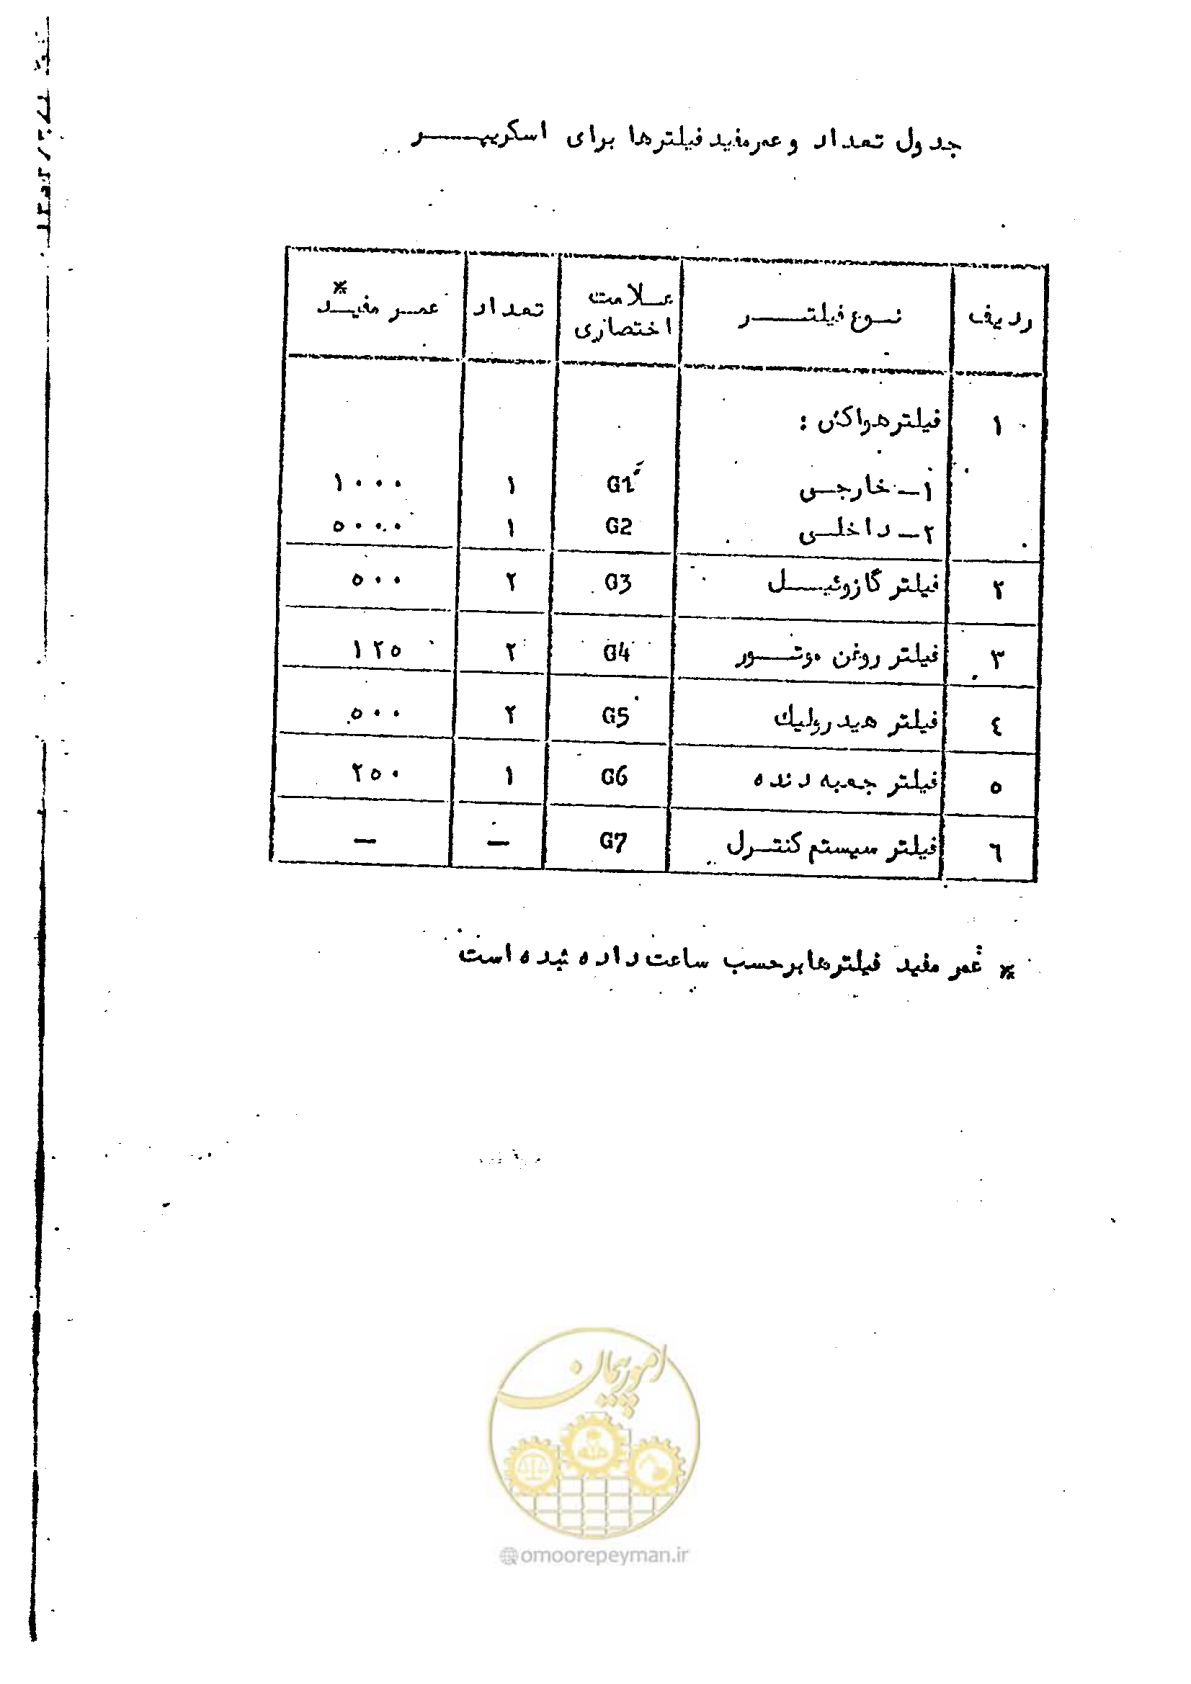 جدول تعداد و عمر مفید فیلترها برای اسکریپر
ردیف نوع فیلتر علامت اختصاری تعداد عمر مفید *
۱ فیلتر هواکش :
۱- خارجی G1 ۱ ۱۰۰۰
۲- داخلی G2 ۱ ۵۰۰۰
۲ فیلتر گازوئیل G3 ۲ ۵۰۰
۳ فیلتر روغن موتور G4 ۲ ۱۲۵
٤ فیلتر هیدرولیك G5 ۲ ۵۰۰
۵ فیلتر جعبه دنده G6 ۱ ۲۵۰
٦ فیلتر سیستم کنترل G7 — —
* عمر مفید فیلترها برحسب ساعت داده شده است
امور پیمان
@omoorepeyman.ir